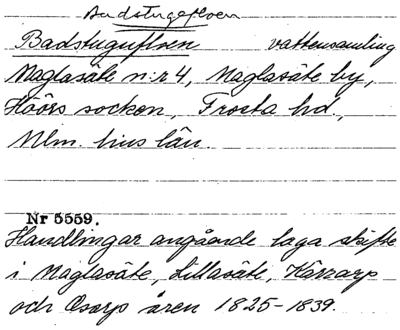 Badstugefloen
Badstugufloen vattensamling
Maglasäte n:r 4, Maglasäte by,
Höörs socken, Frosta hd.,
Mlm. hus län.
Nr 5559.
Handlingar angående laga skifte
i Maglasäte, Lillasäte, Kärrarp
och Osarp åren 1825-1839.